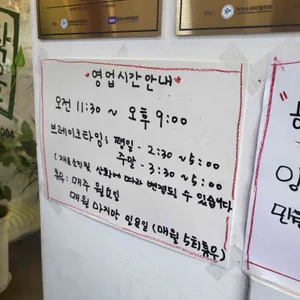 영업시간안내
오전 11:30 ~ 오후 9:00
브레이크타임; 평일 - 2:30 ~ 5:00
주말 - 3:30 ~ 5:00
(재료소진및 상황에 따라 변경될 수 있습니다
휴무: 매주 월요일
매월 마지막 일요일 (매월 5회휴무)